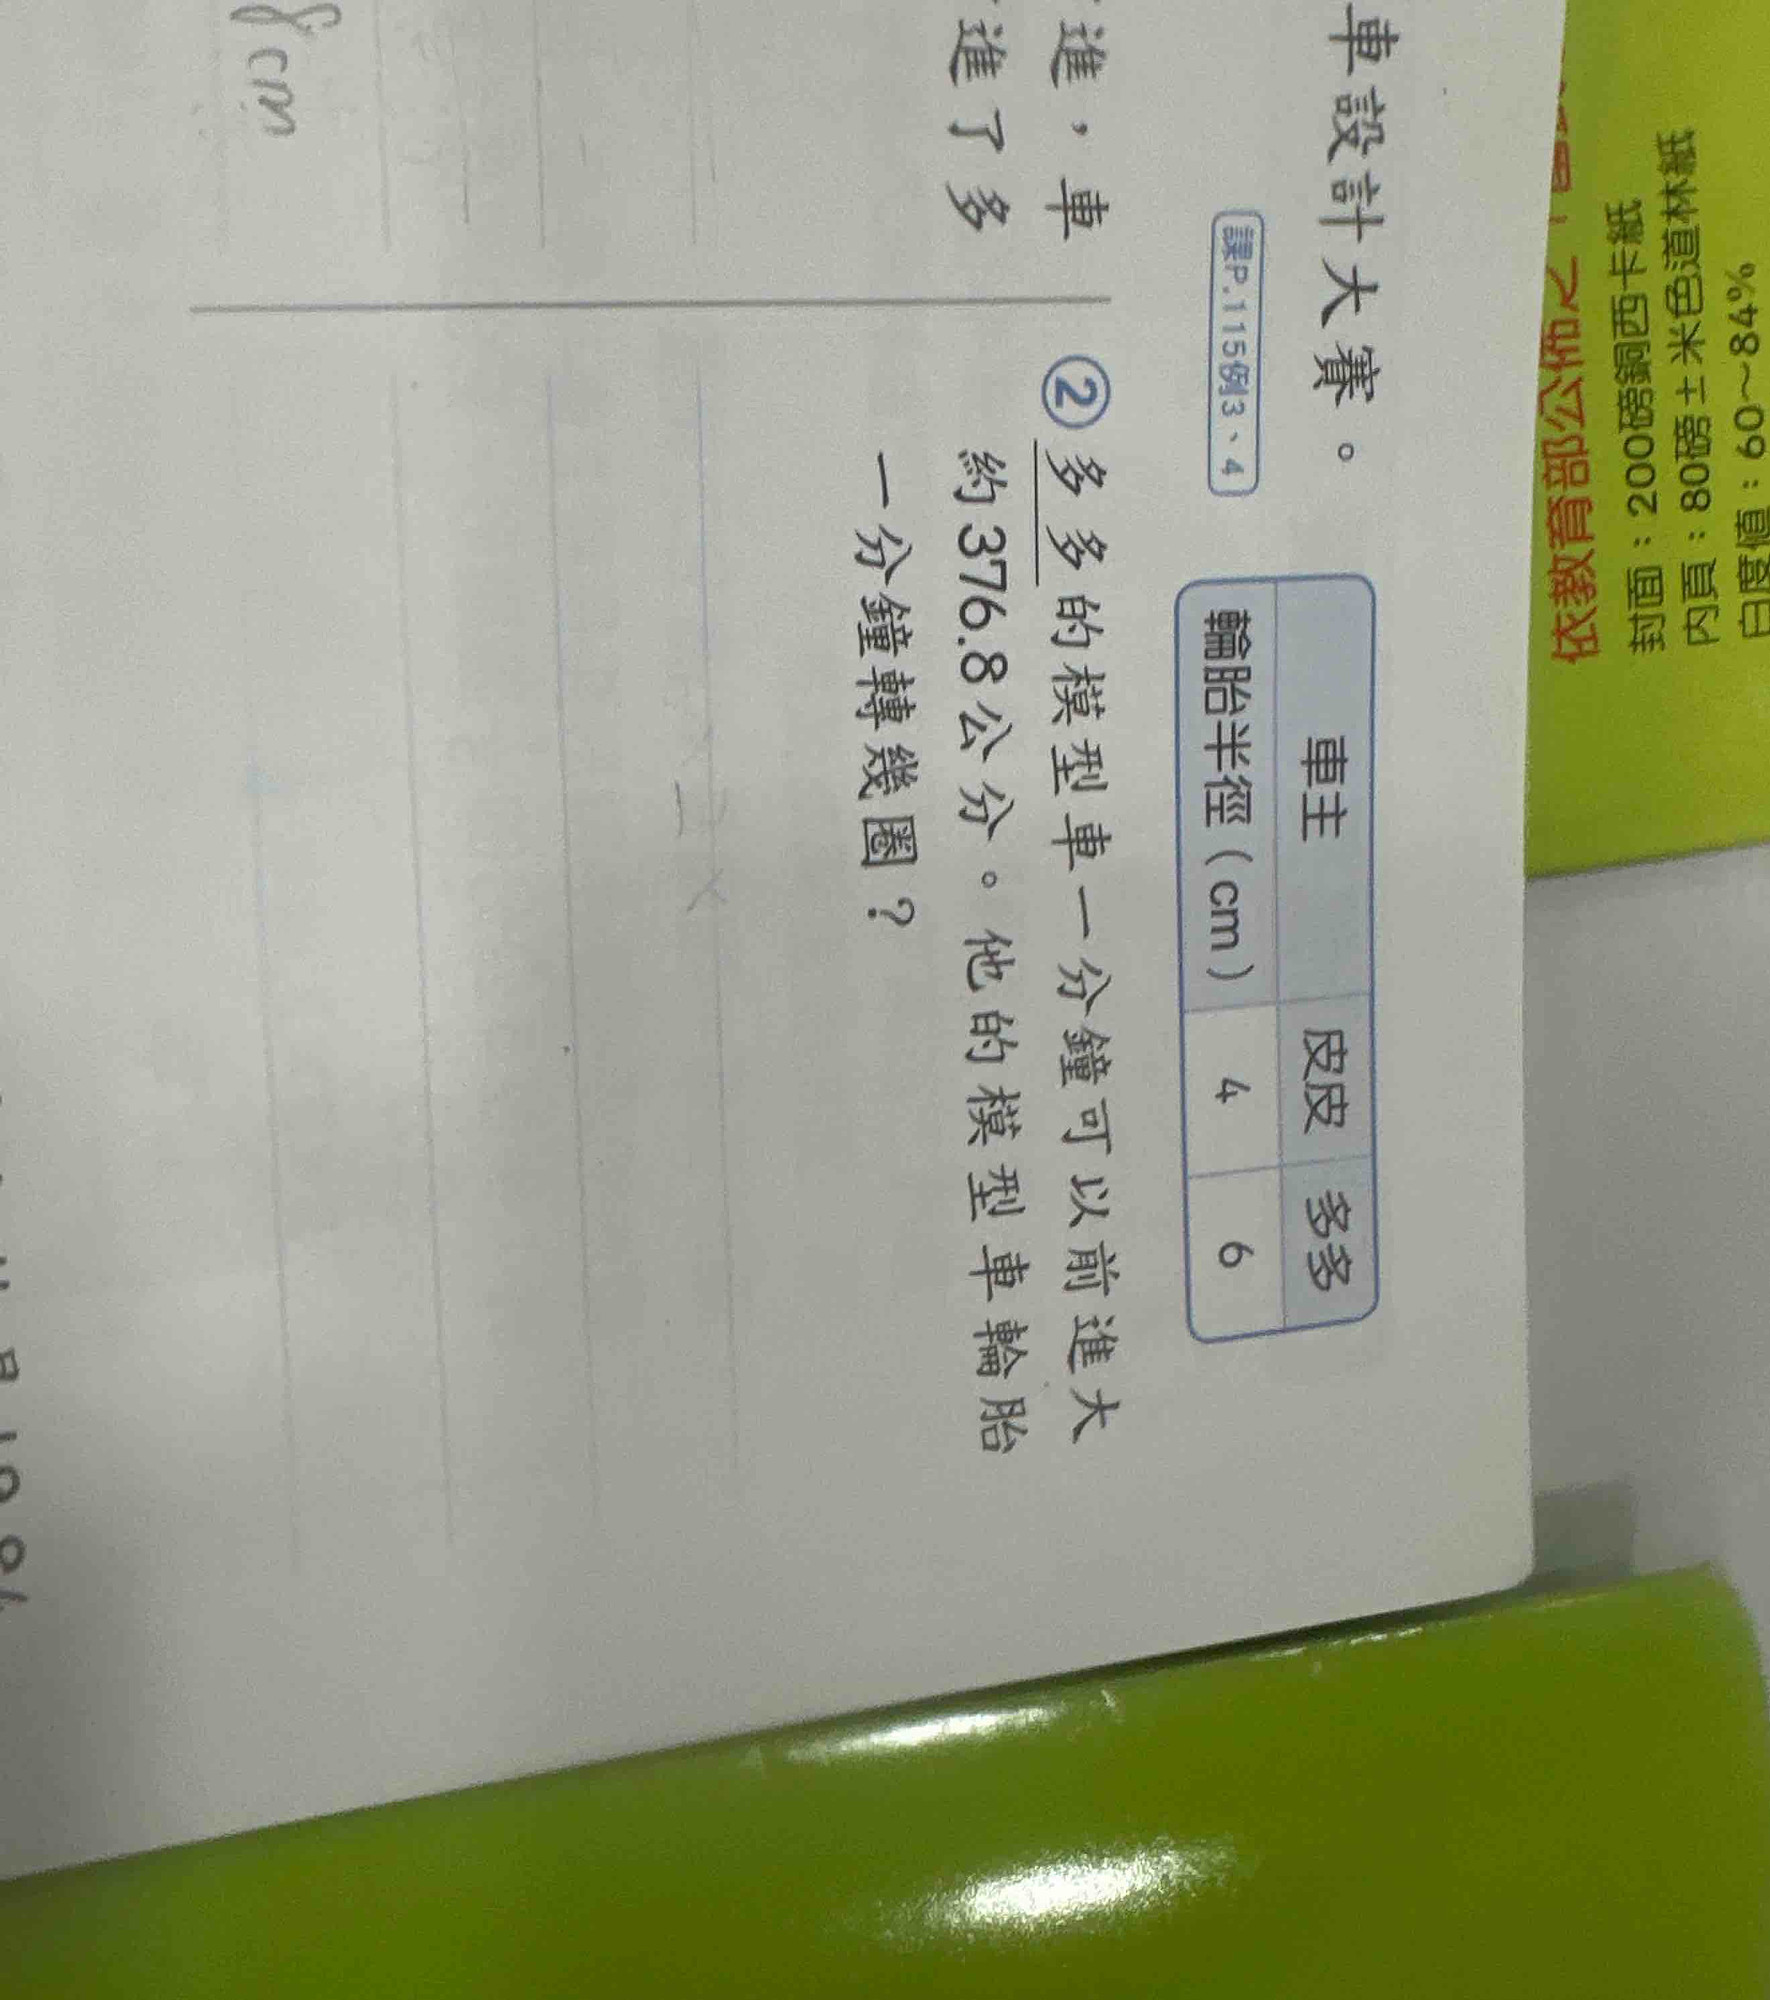 車設計大賽。
課P.115例3、4
車主 皮皮 多多
輪胎半徑（cm） 4 6
進，車
進了多
② 多多的模型車一分鐘可以前進大
約376.8公分。他的模型車輪胎
一分鐘轉幾圈？
8cm
依教育部公佈之
封面：200磅銅西卡紙
內頁：80磅士米色道林紙
白度值：60～84%